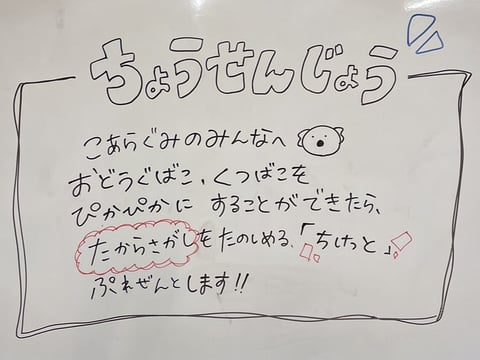 ちょうせんじょう
こあらぐみのみんなへ
おどうぐばこ、くつばこを
ぴかぴかに することができたら、
たからさがしをたのしめる、「ちけっと」
ぷれぜんとします!!